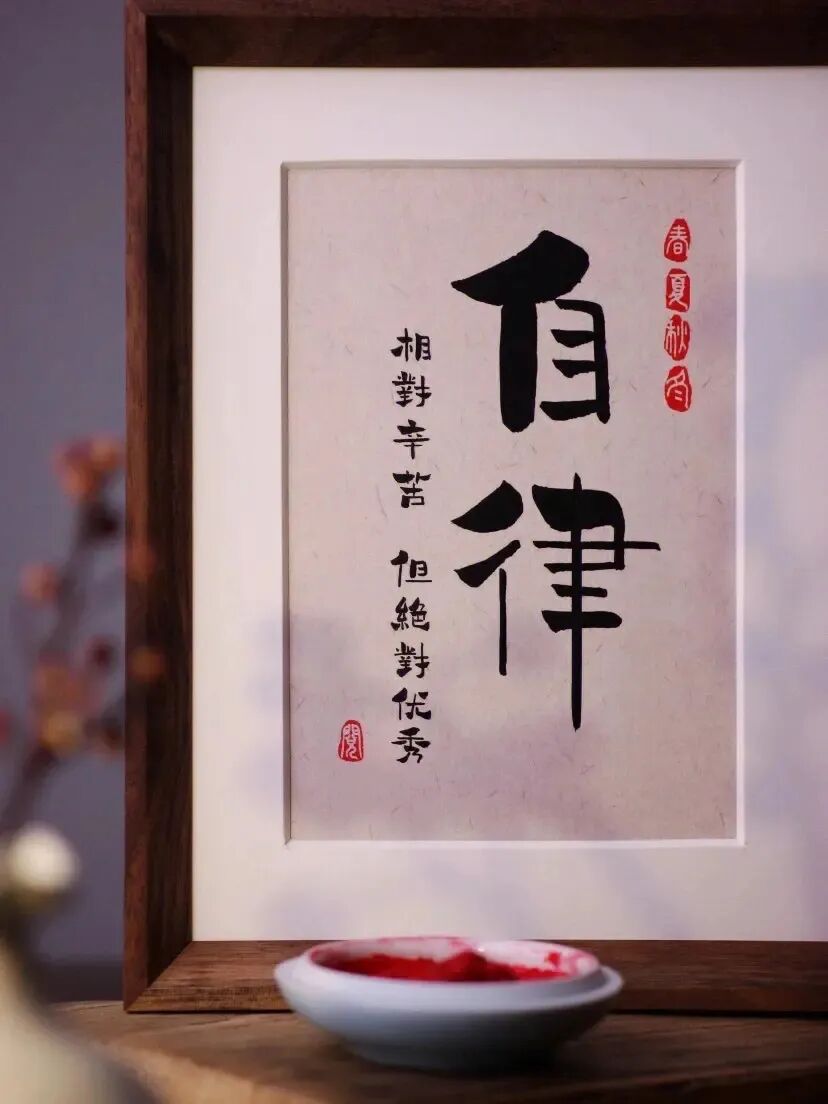 春夏秋冬
自律
相對辛苦 但絶對优秀